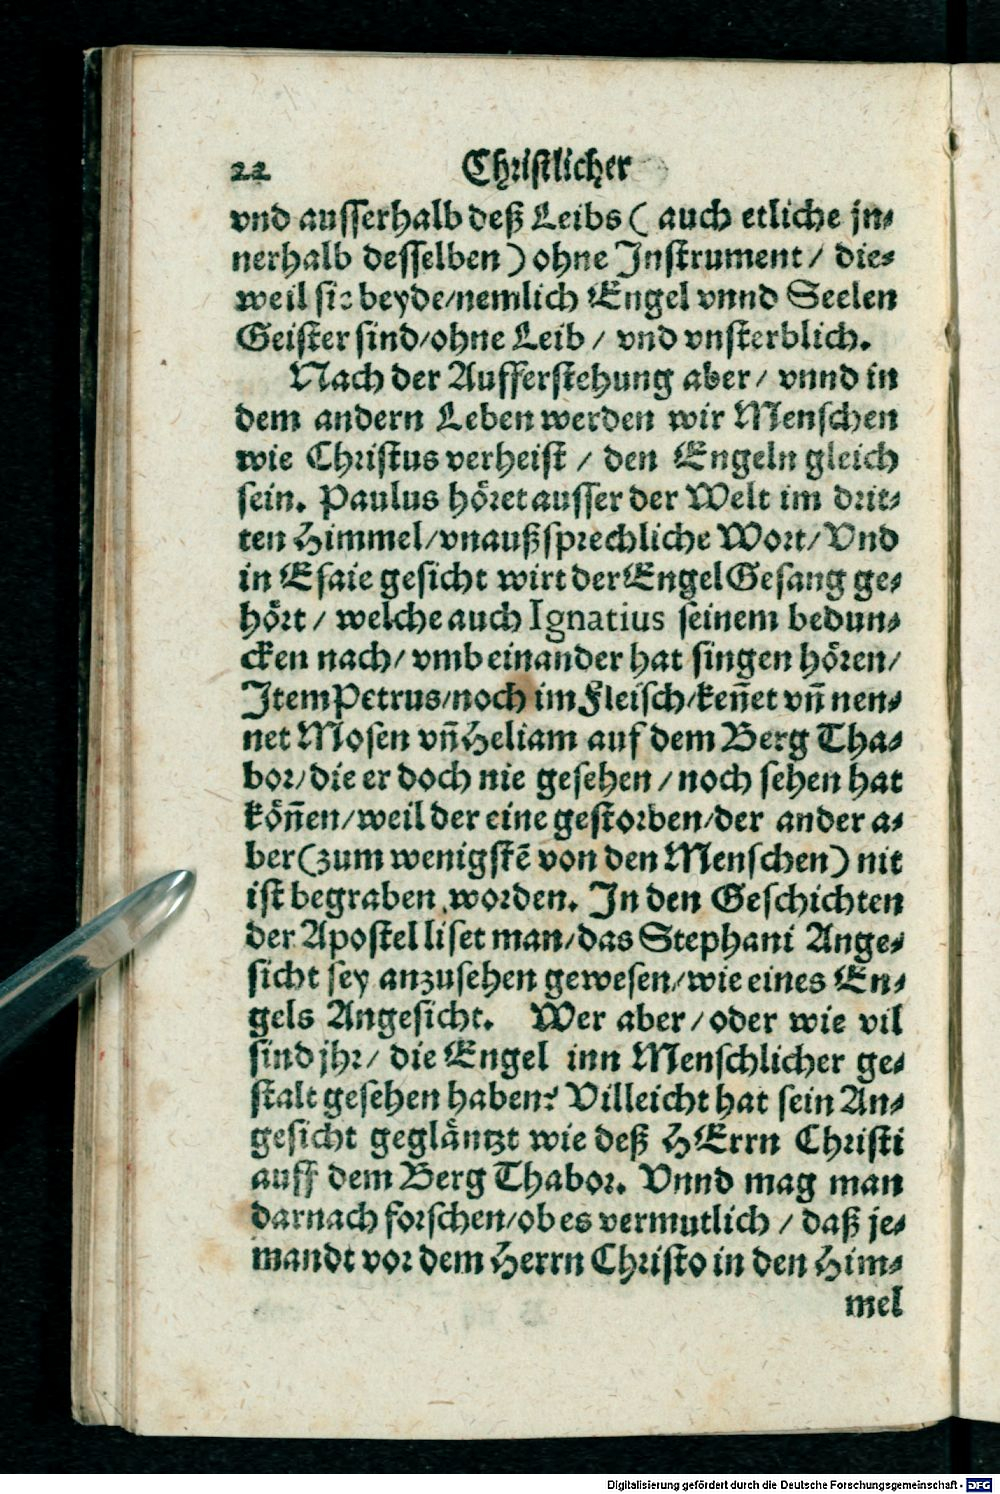 22 Christlicher
vnd ausserhalb deß Leibs ( auch etliche jn⸗
nerhalb desselben ) ohne Instrument / die⸗
weil sie beyde/nemlich Engel vnnd Seelen
Geister sind/ohne Leib / vnd vnsterblich.
Nach der Aufferstehung aber/ vnnd in
dem andern Leben werden wir Menschen
wie Christus verheist / den Engeln gleich
sein. Paulus höret ausser der Welt im drit⸗
ten Himmel/vnaußsprechliche Wort/ Vnd
in Esaie gesicht wirt der Engel Gesang ge⸗
hört / welche auch Ignatius seinem bedun⸗
cken nach/ vmb einander hat singen hören/
Item Petrus/noch im Fleisch/keñet vñ nen⸗
net Mosen vñ Heliam auf dem Berg Tha⸗
bor/die er doch nie gesehen / noch sehen hat
köñen/weil der eine gestorben/der ander a⸗
ber(zum wenigstē von den Menschen) nit
ist begraben worden. In den Geschichten
der Apostel liset man/das Stephani Ange⸗
sicht sey anzusehen gewesen/wie eines En⸗
gels Angesicht. Wer aber / oder wie vil
sind jhr/ die Engel inn Menschlicher ge⸗
stalt gesehen haben? Villeicht hat sein An⸗
gesicht gegläntzt wie deß HErrn Christi
auff dem Berg Thabor. Vnnd mag man
darnach forschen/ob es vermutlich / daß je⸗
mandt vor dem Herrn Christo in den Him⸗
mel
Digitalisierung gefördert durch die Deutsche Forschungsgemeinschaft - DFG